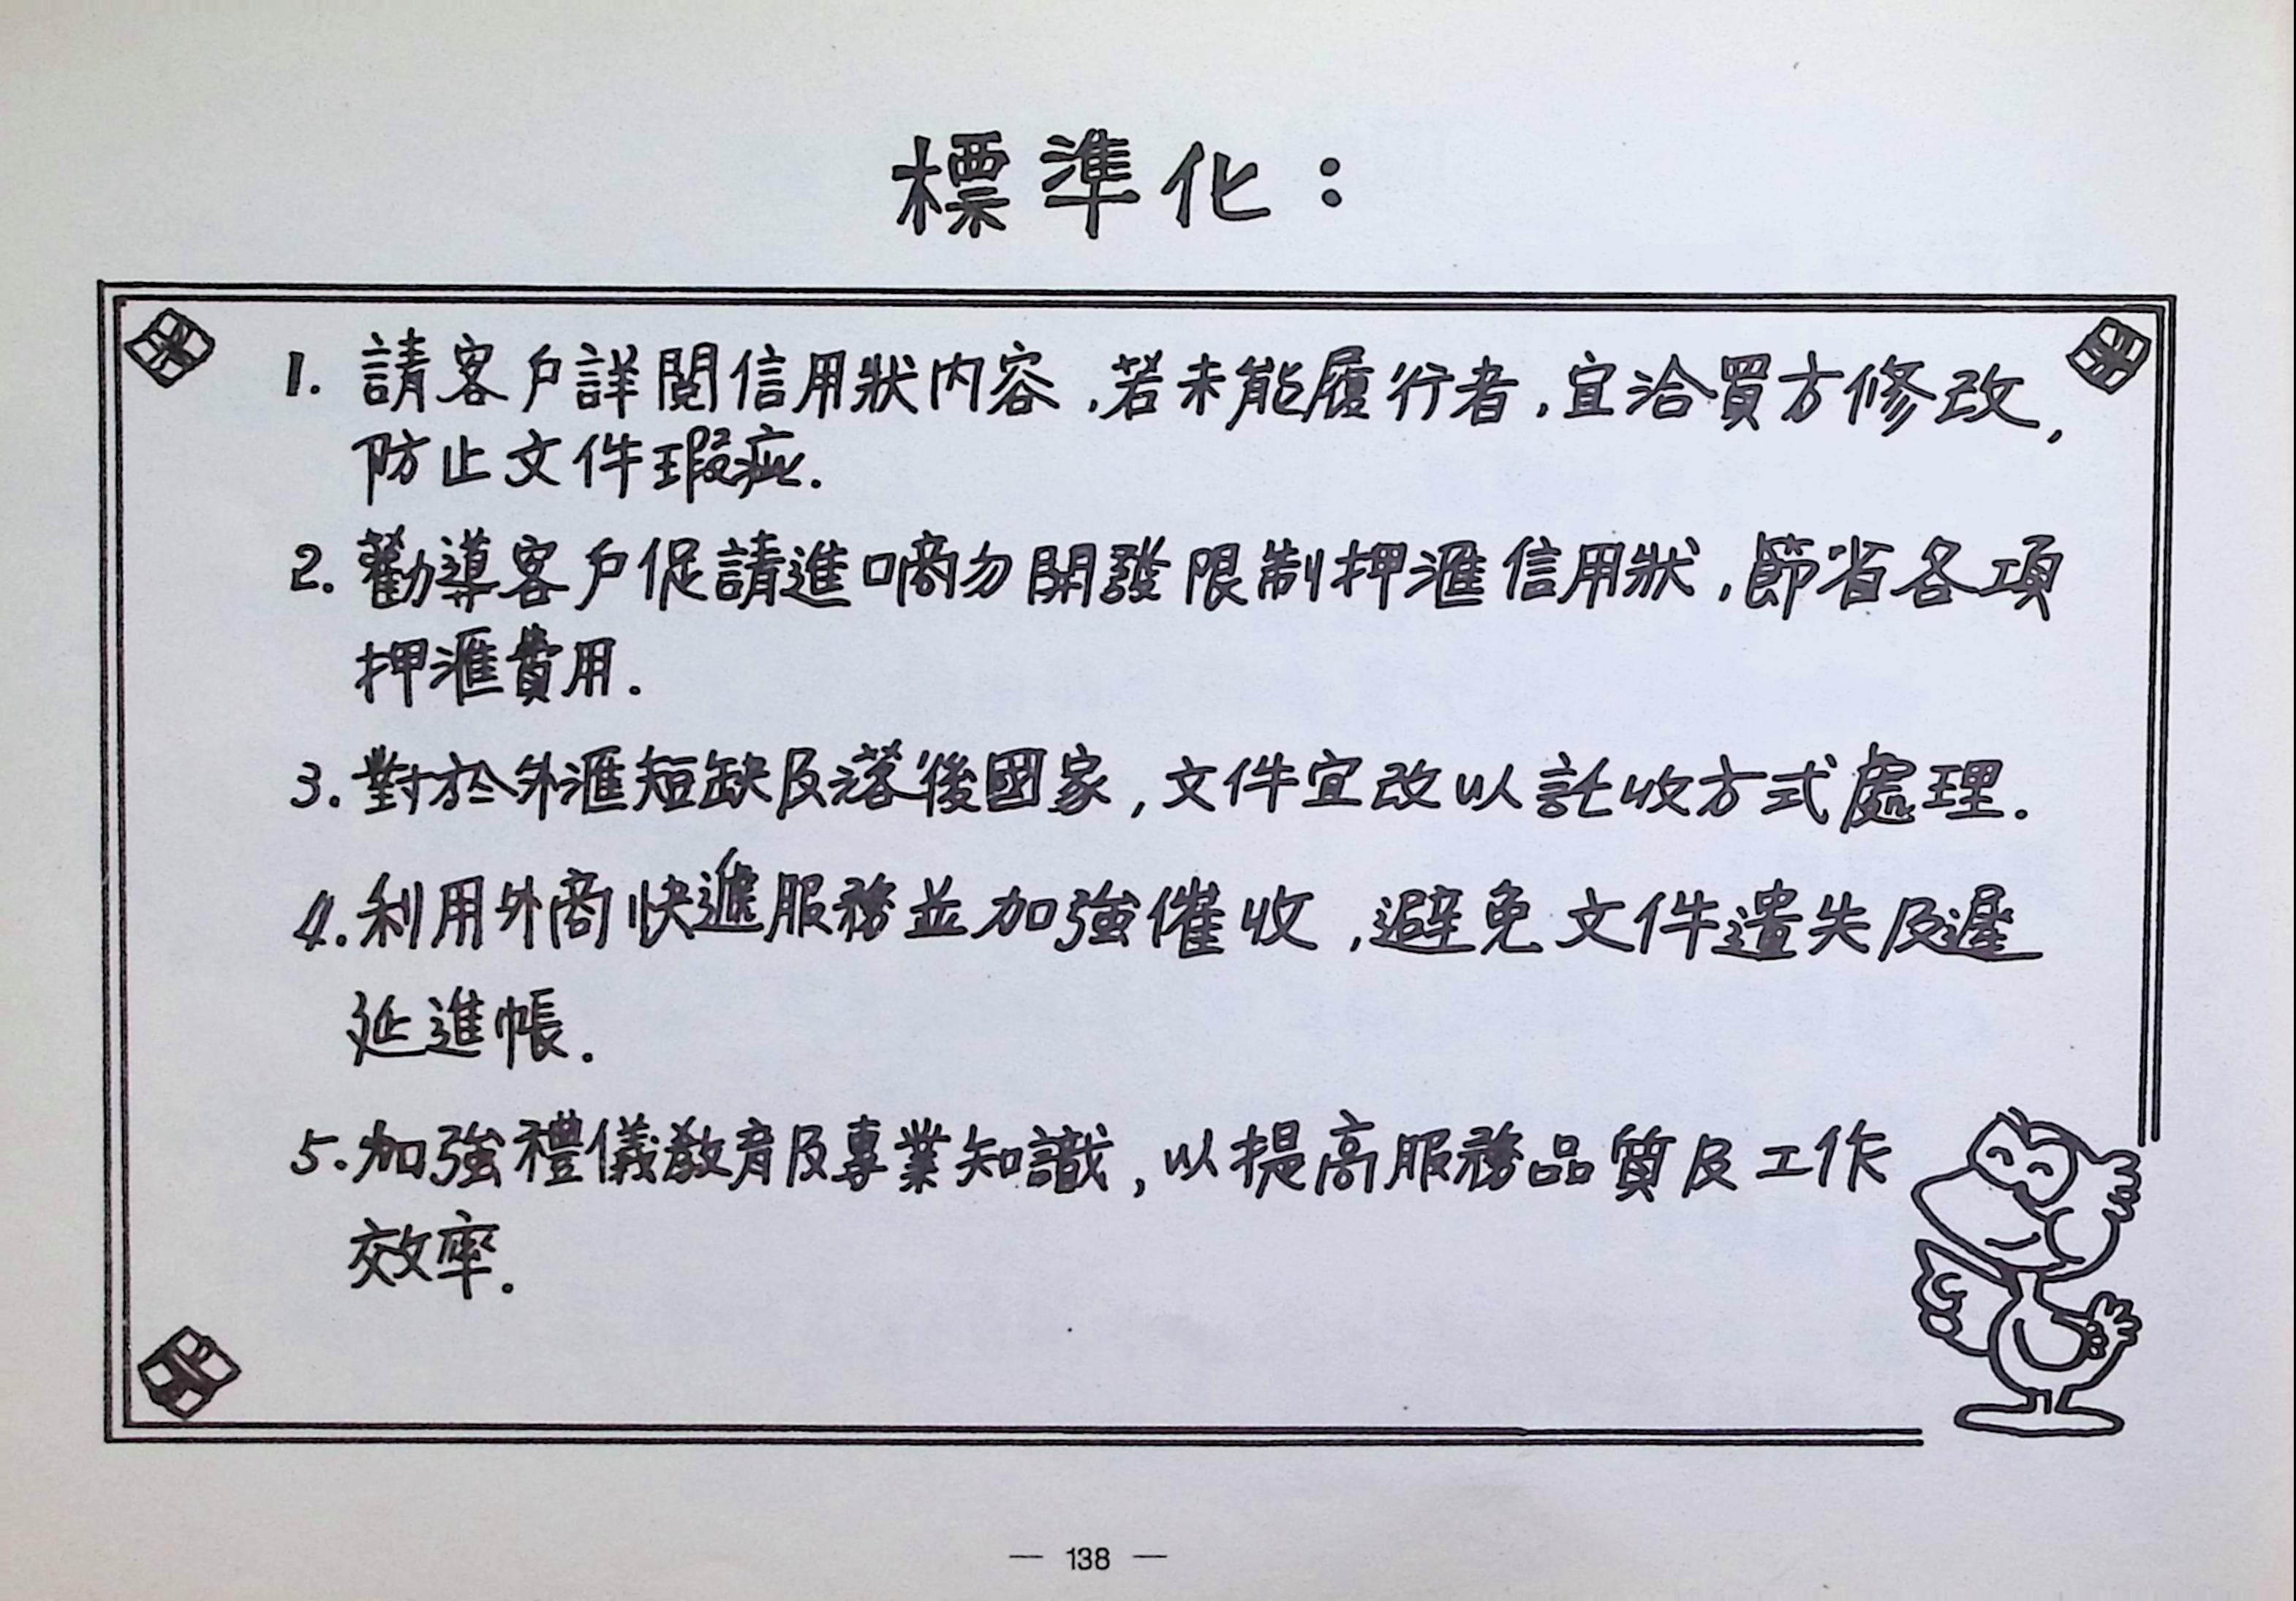 標準化：
1. 請客戶詳閱信用狀內容，若未能履行者，宜洽買方修改，
防止文件瑕疵.
2. 勸導客戶促請進口商勿開發限制押滙信用狀，節省各項
押滙費用.
3. 對於外滙短缺及落後國家，文件宜改以託收方式處理.
4. 利用外商快遞服務並加強催收，避免文件遺失及遲
延進帳.
5. 加強禮儀教育及專業知識，以提高服務品質及工作
效率.
— 138 —